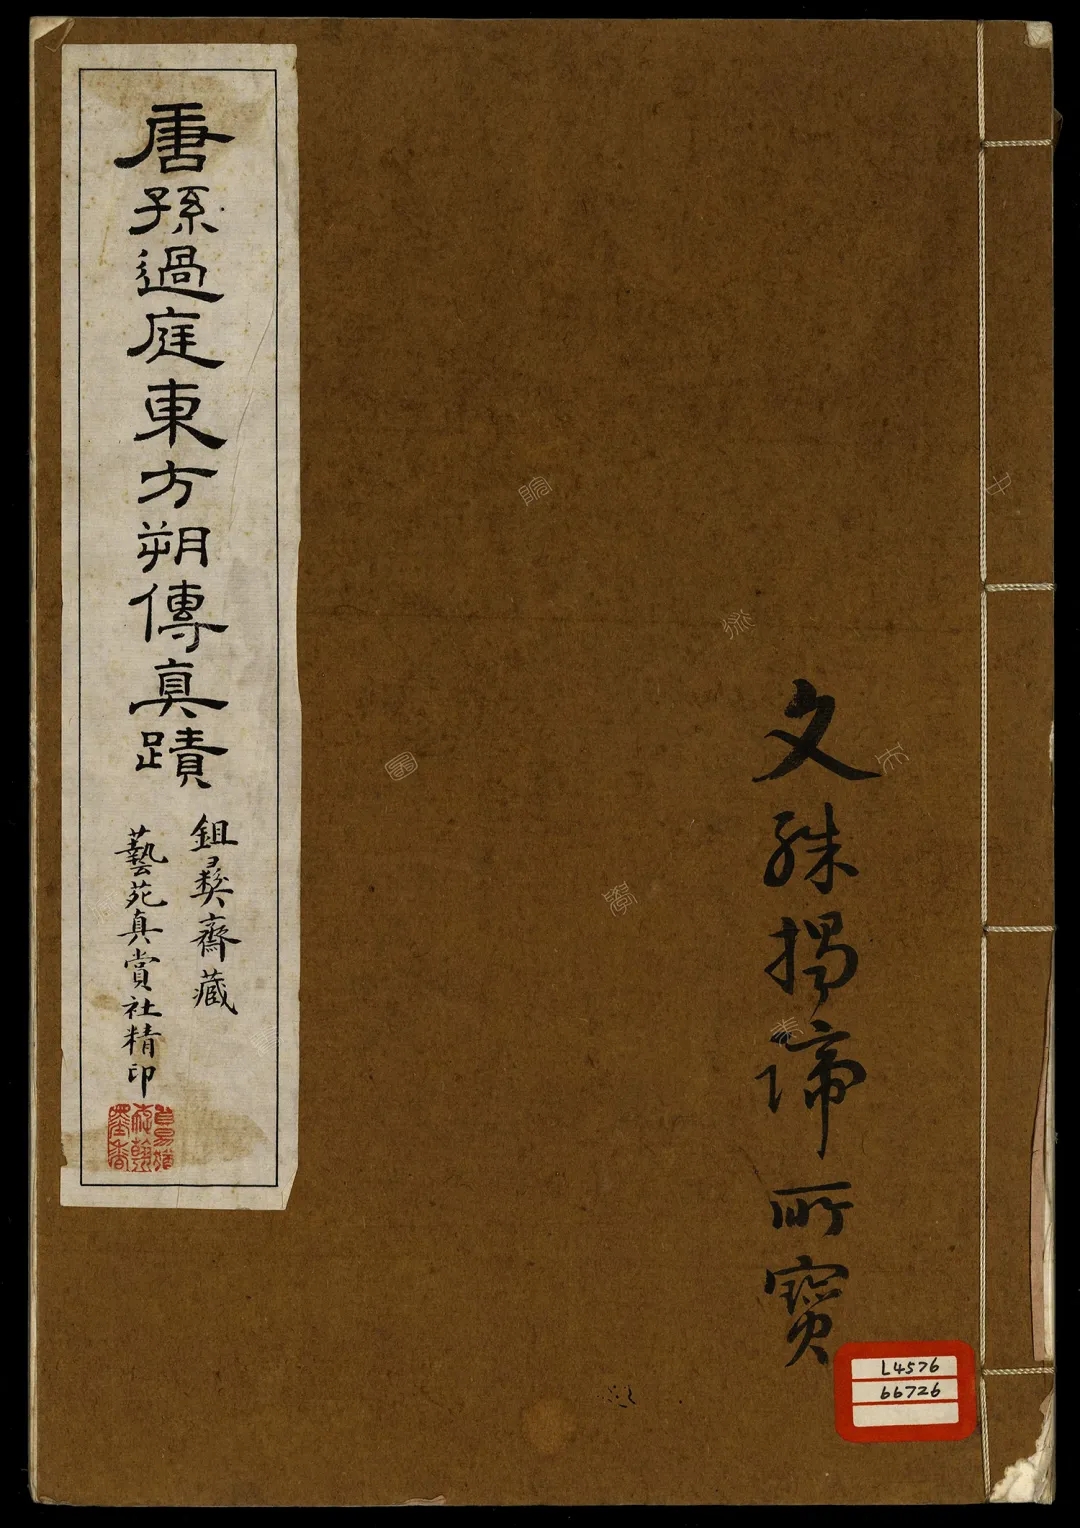 唐孫過庭東方朔傳真蹟
鉏彝齋藏
藝苑真賞社精印
文殊揭諦所寶
L4576
66726